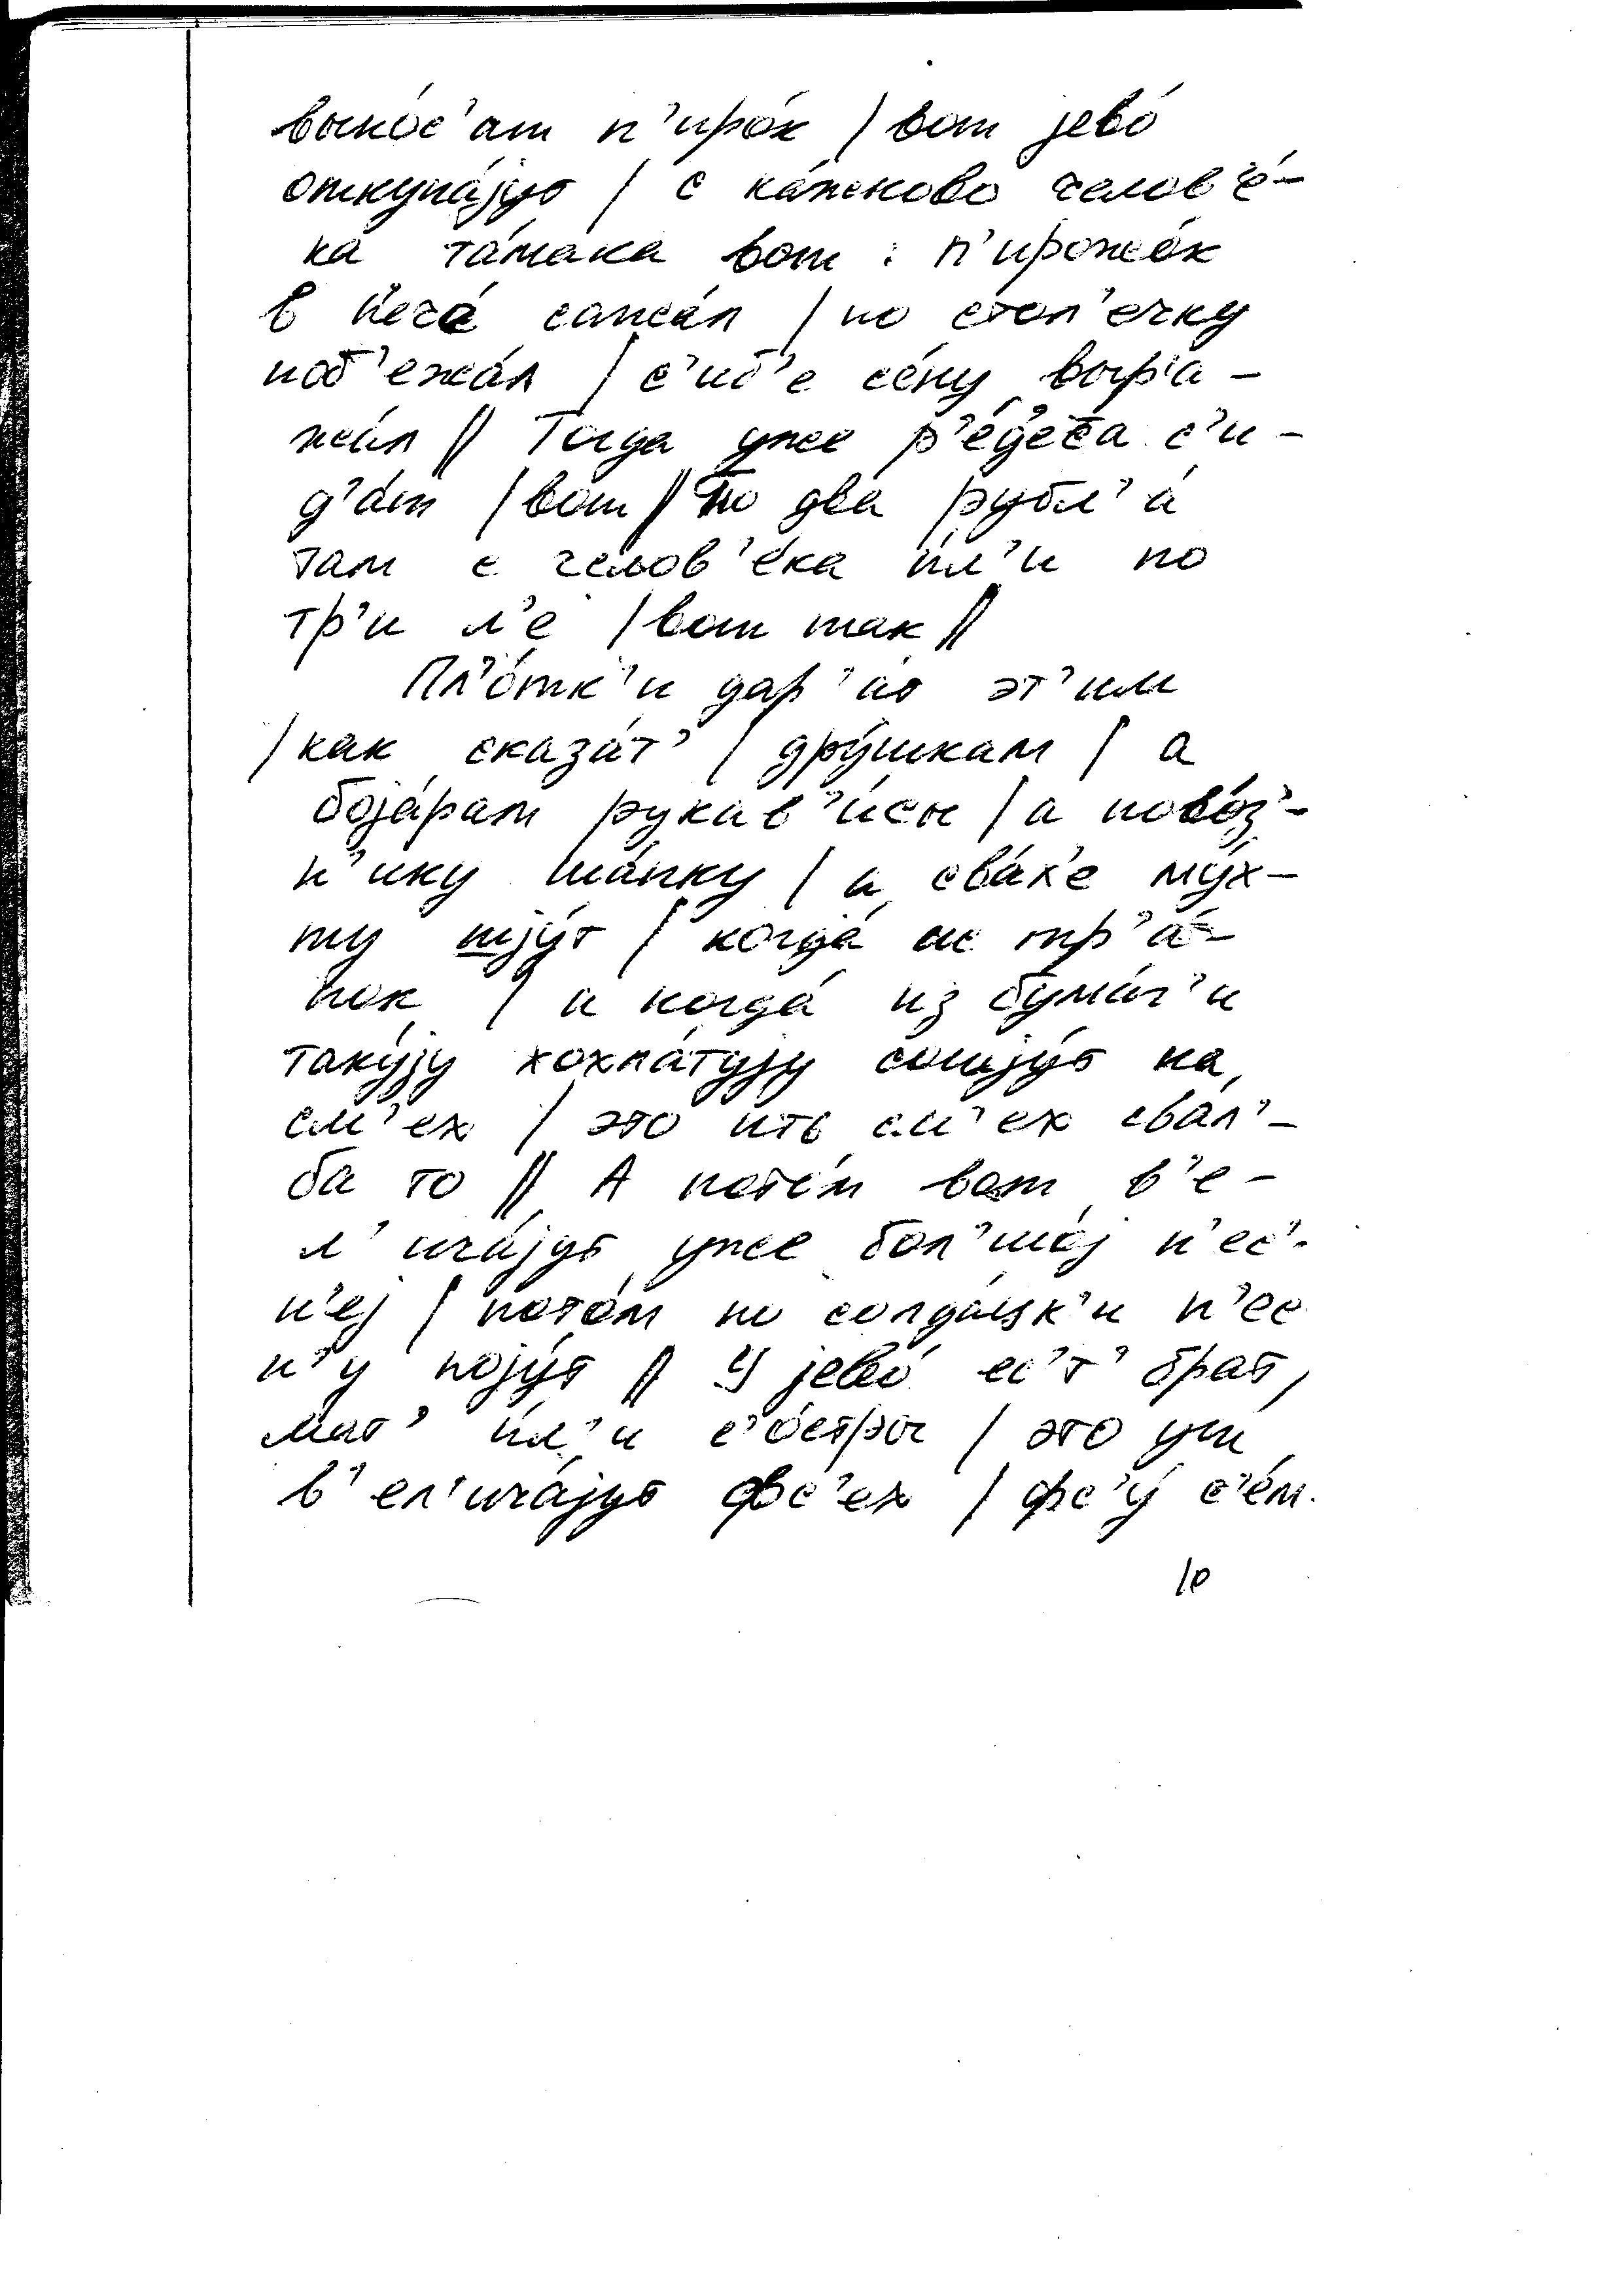 выно́с'ат п'иро́к / вот јево́
откупа́јут / с ка́жново челов'е́-
ка та́мака вот : п'ирожо́к
в пече́ сажа́л / по стол'ечку
поб'ежа́л / с'иб'е се́ну выр'а-
жа́л // Тогда уже р'е́д'еса с'и-
д'а́т / вот // По два рубл'а́
там с челов'е́ка и́л'и по
тр'и л'е / вот так //
Пл'о́тк'и дар'а́т эт'им
/ как сказа́т' / дру́шкам / а
боја́рам рукав'и́сы / а пово́з'-
н'ику ша́пку / а сва́х'е му́х-
ту шју́т / когда́ ис тр'а́-
пок / а когда́ из бума́г'и
таку́ју хохла́тују сошју́т на
см'ех / это ить см'ех свал'-
ба то // А пото́м вот в'е-
л'ича́јут уже бол'шо́ј п'ес'-
н'еј / пото́м по солда́цк'и п'ес
н'у појут // У јево́ ес'т' брат,
мат' и́л'и с'о́стры / это уш
в'ел'ича́јут фс'ех / фс'у́ с'е́м.
10